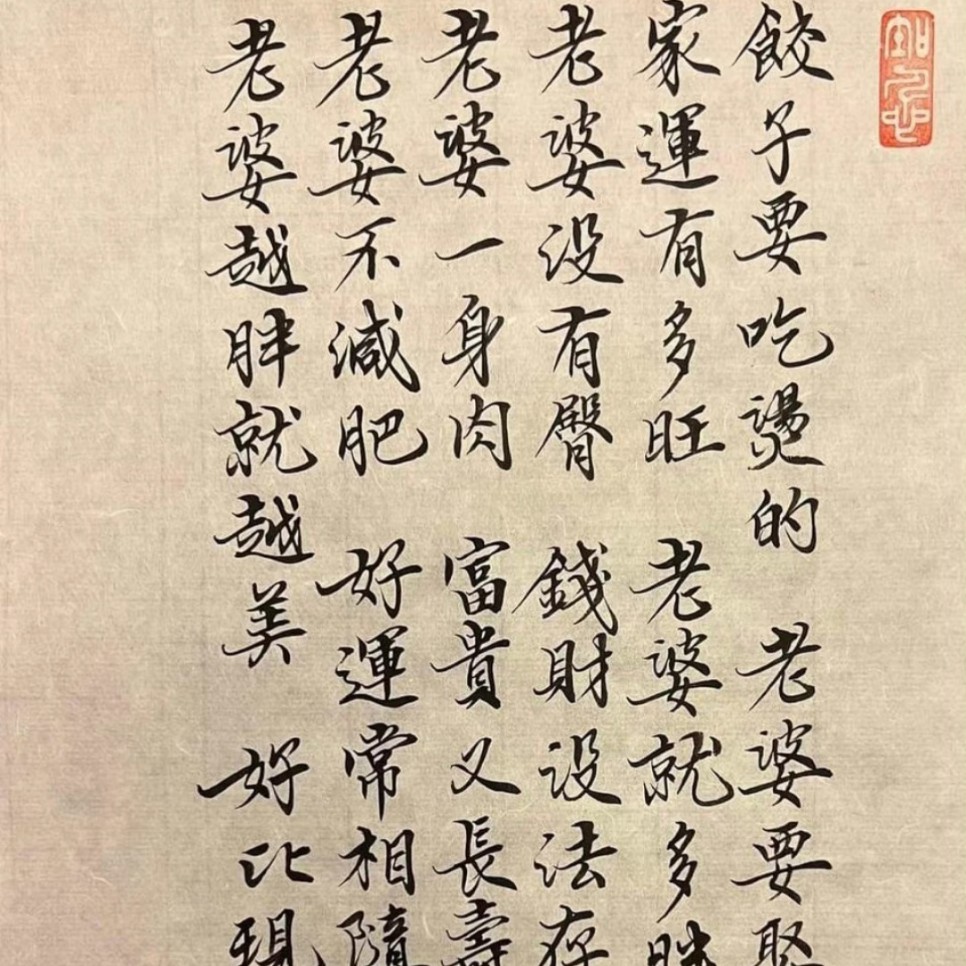 餃子要吃燙的 老婆要娶
家運有多旺 老婆就多胖
老婆没有臀 錢財没法存
老婆一身肉 富貴又長壽
老婆不減肥 好運常相隨
老婆越胖就越美 好比現